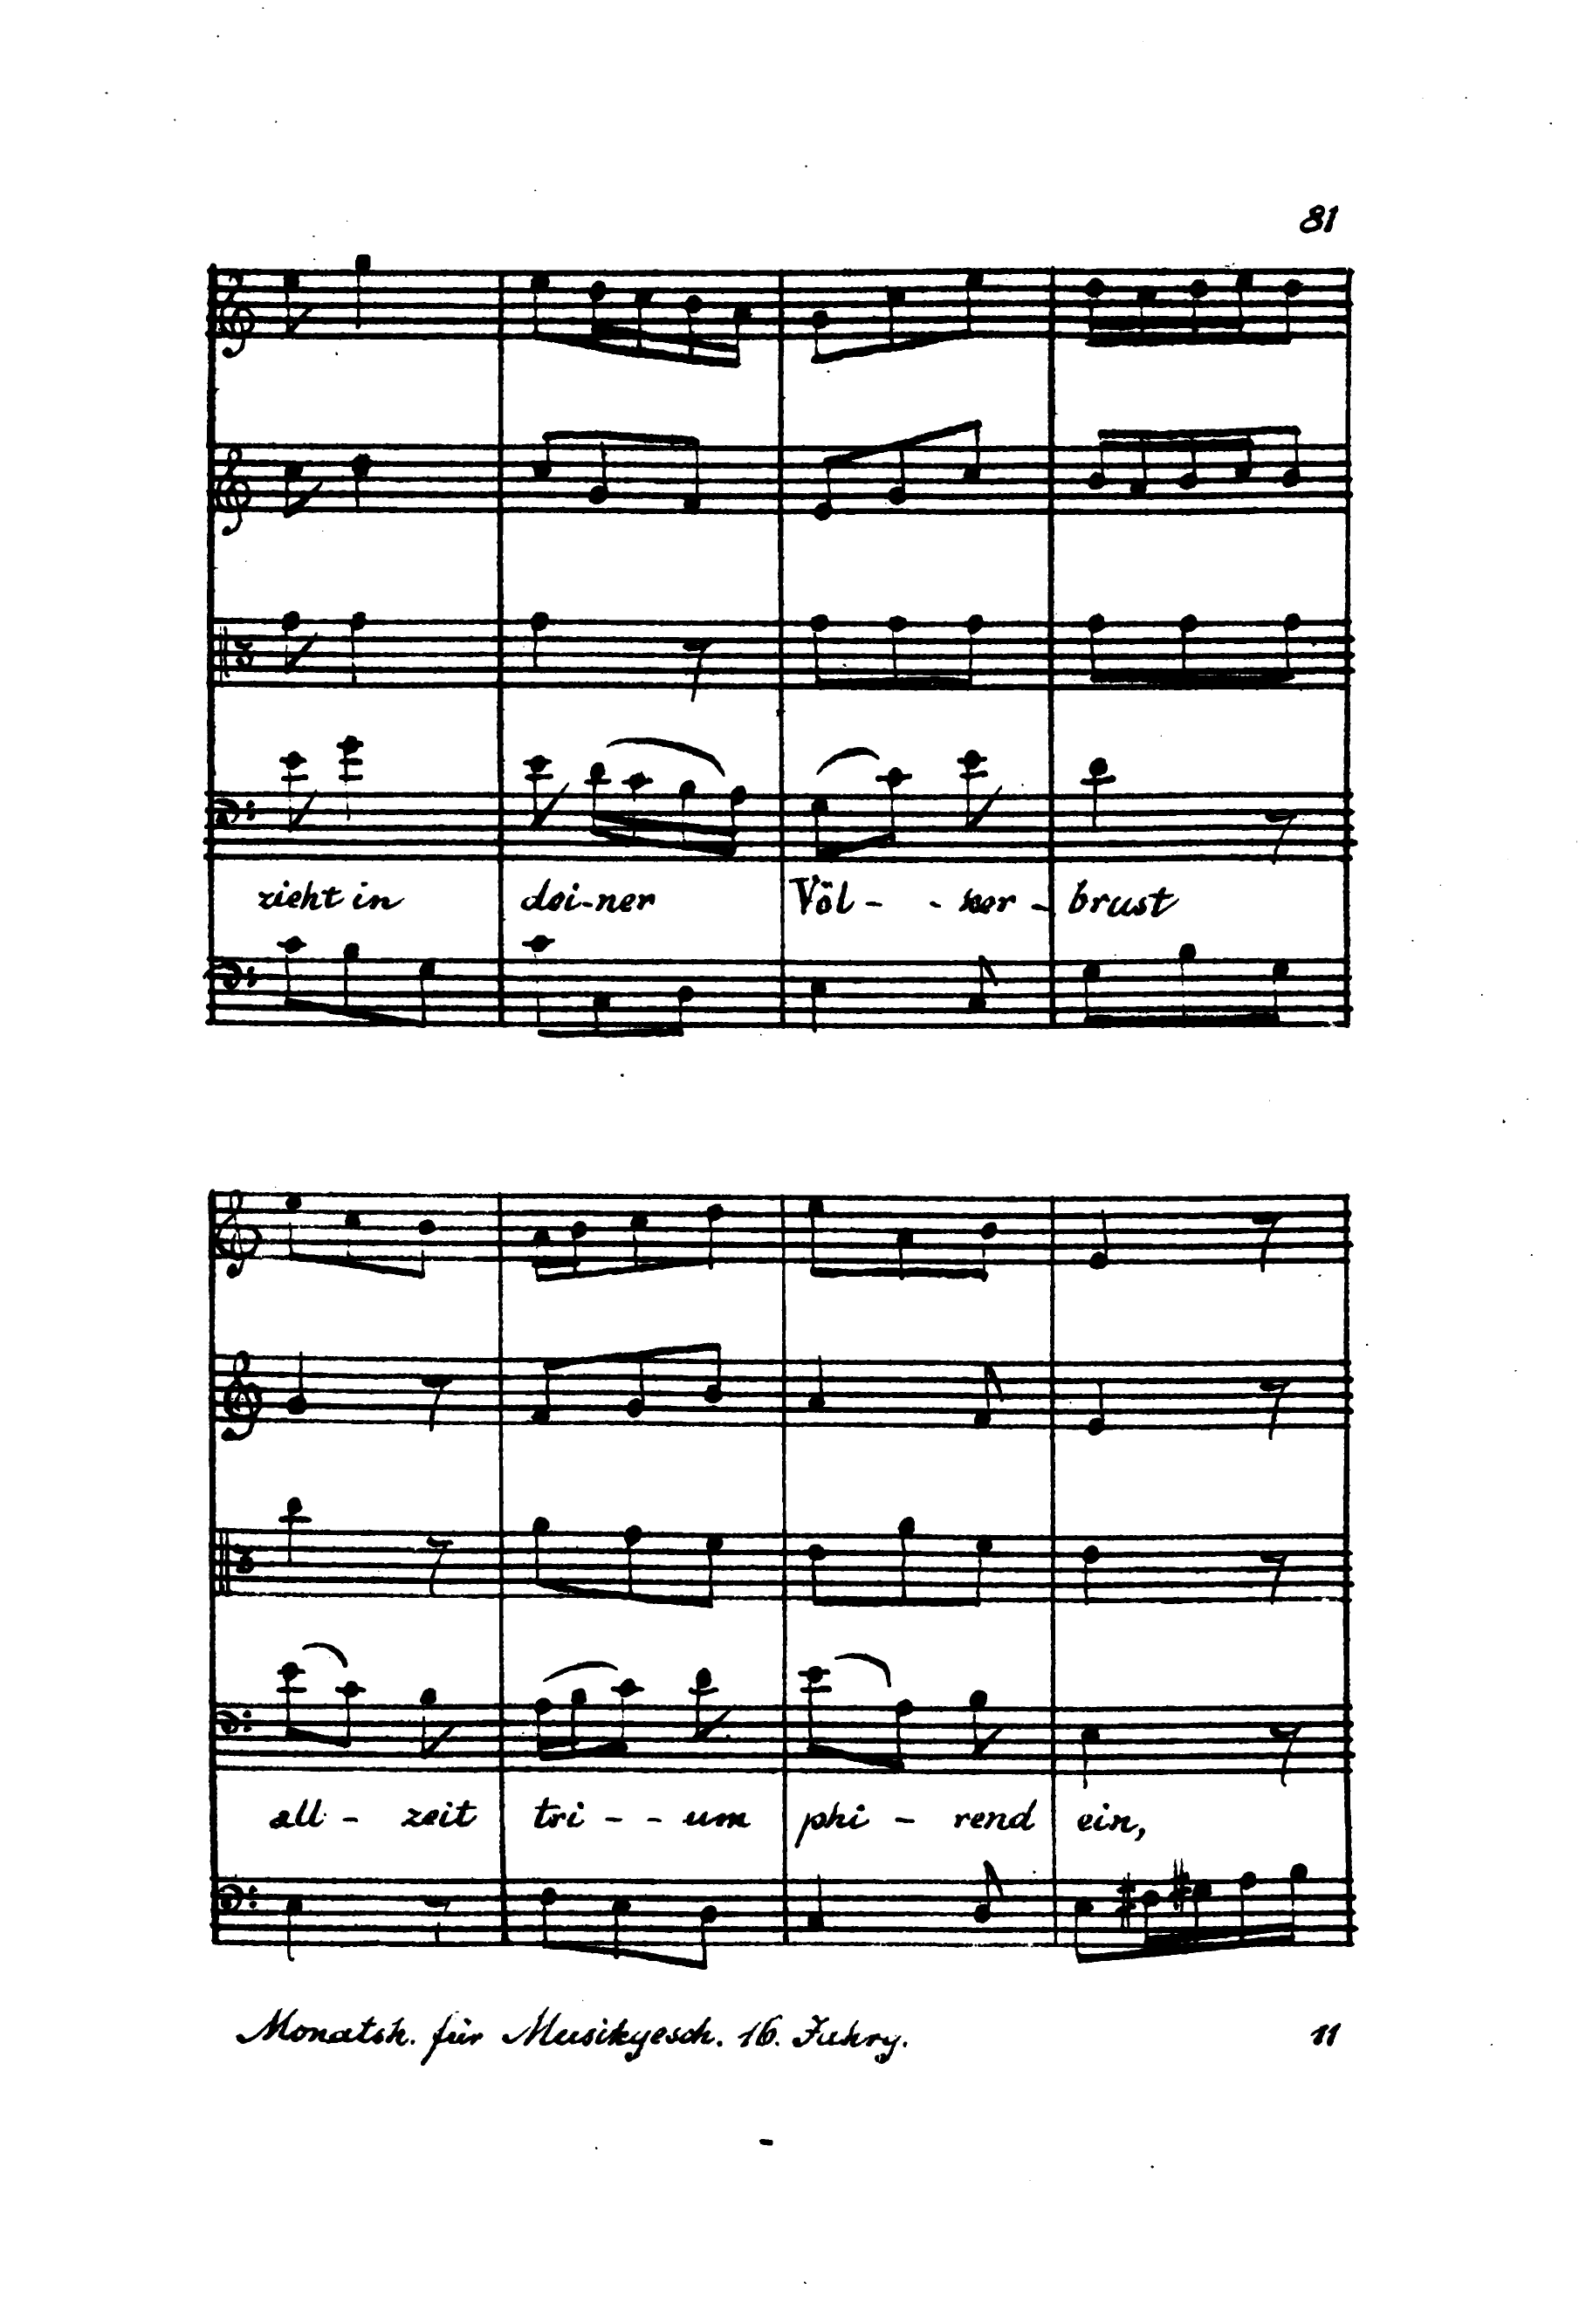 81
zieht in dei-ner Völ- - ker - brust
all - zeit tri - - um phi - rend ein,
Monatsh. für Musikgesch. 16. Jahrg. 11